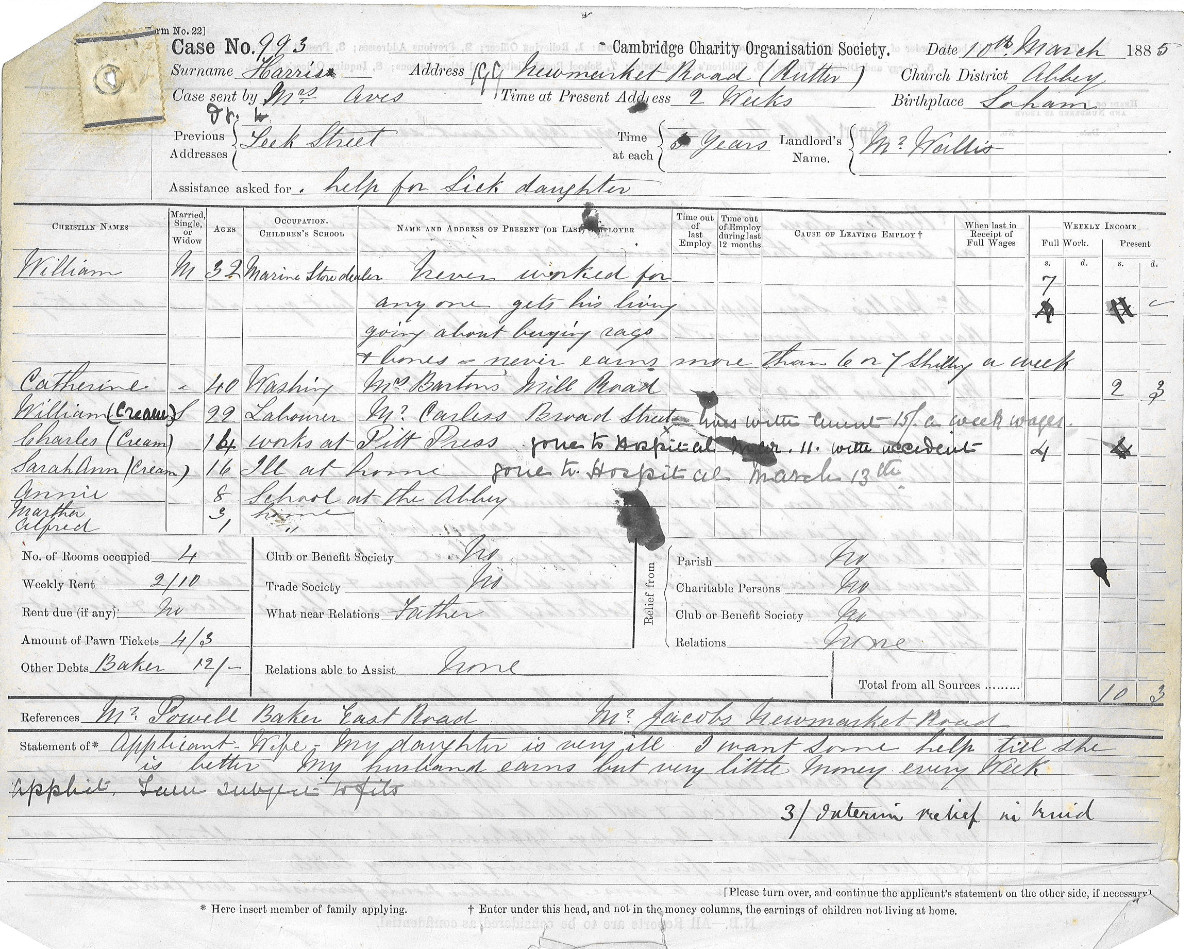 Form No. 22]
Case No. 993 Cambridge Charity Organisation Society. Date 10th March 1885
Surname Harris Address 199 Newmarket Road (Rutter) Church District Abbey
Case sent by Mrs Aves Time at Present Address 2 Weeks Birthplace Soham
Previous Addresses Leek Street Time at each 5 Years Landlord's Name. Mr Wallis
Assistance asked for. help for Sick daughter
Christian Names Married, Single, or Widow Ages Occupation. Children's School Name and Address of Present (or Last) Employer Time out of last Employ Time out of Employ during last 12 months Cause of Leaving Employ † When last in Receipt of Full Wages Weekly Income
Full Work. Present
s. d. s. d.
William M 32 Marine Store dealer Never worked for 7
any one gets his living
going about buying rags
+ bones - never earns more than 6 or 7 Shillg a week
Catherine " 40 Washing Mrs Bartons Mill Road 2 3
William (Cream) S 22 Labourer Mr Carliss Broad Street lives with Aunt 15/ a week wages.
Charles (Cream) 14 works at Pitt Press gone to Hospital Mar. 11. with accident 4
Sarah Ann (Cream) 16 Ill at home gone to Hospital March 13th
Annie 8 School at the Abbey
Marther 3 home
Alfred 1 "
No. of Rooms occupied 4 Club or Benefit Society No Relief from Parish No
Weekly Rent 2/10 Trade Society No Charitable Persons No
Rent due (if any) No What near Relations Father Club or Benefit Society No
Amount of Pawn Tickets 4/3 Relations None
Other Debts Baker 12/- Relations able to Assist None
Total from all Sources ......... 10 3
References Mr Powell Baker East Road Mr Jacobs Newmarket Road
Statement of* Applicant - Wife - My daughter is very ill I want some help till she
is better My husband earns but very little Money every Week
I am subject to fits
3/ Interim relief in kind
[Please turn over, and continue the applicant's statement on the other side, if necessary.
* Here insert member of family applying. † Enter under this head, and not in the money columns, the earnings of children not living at home.